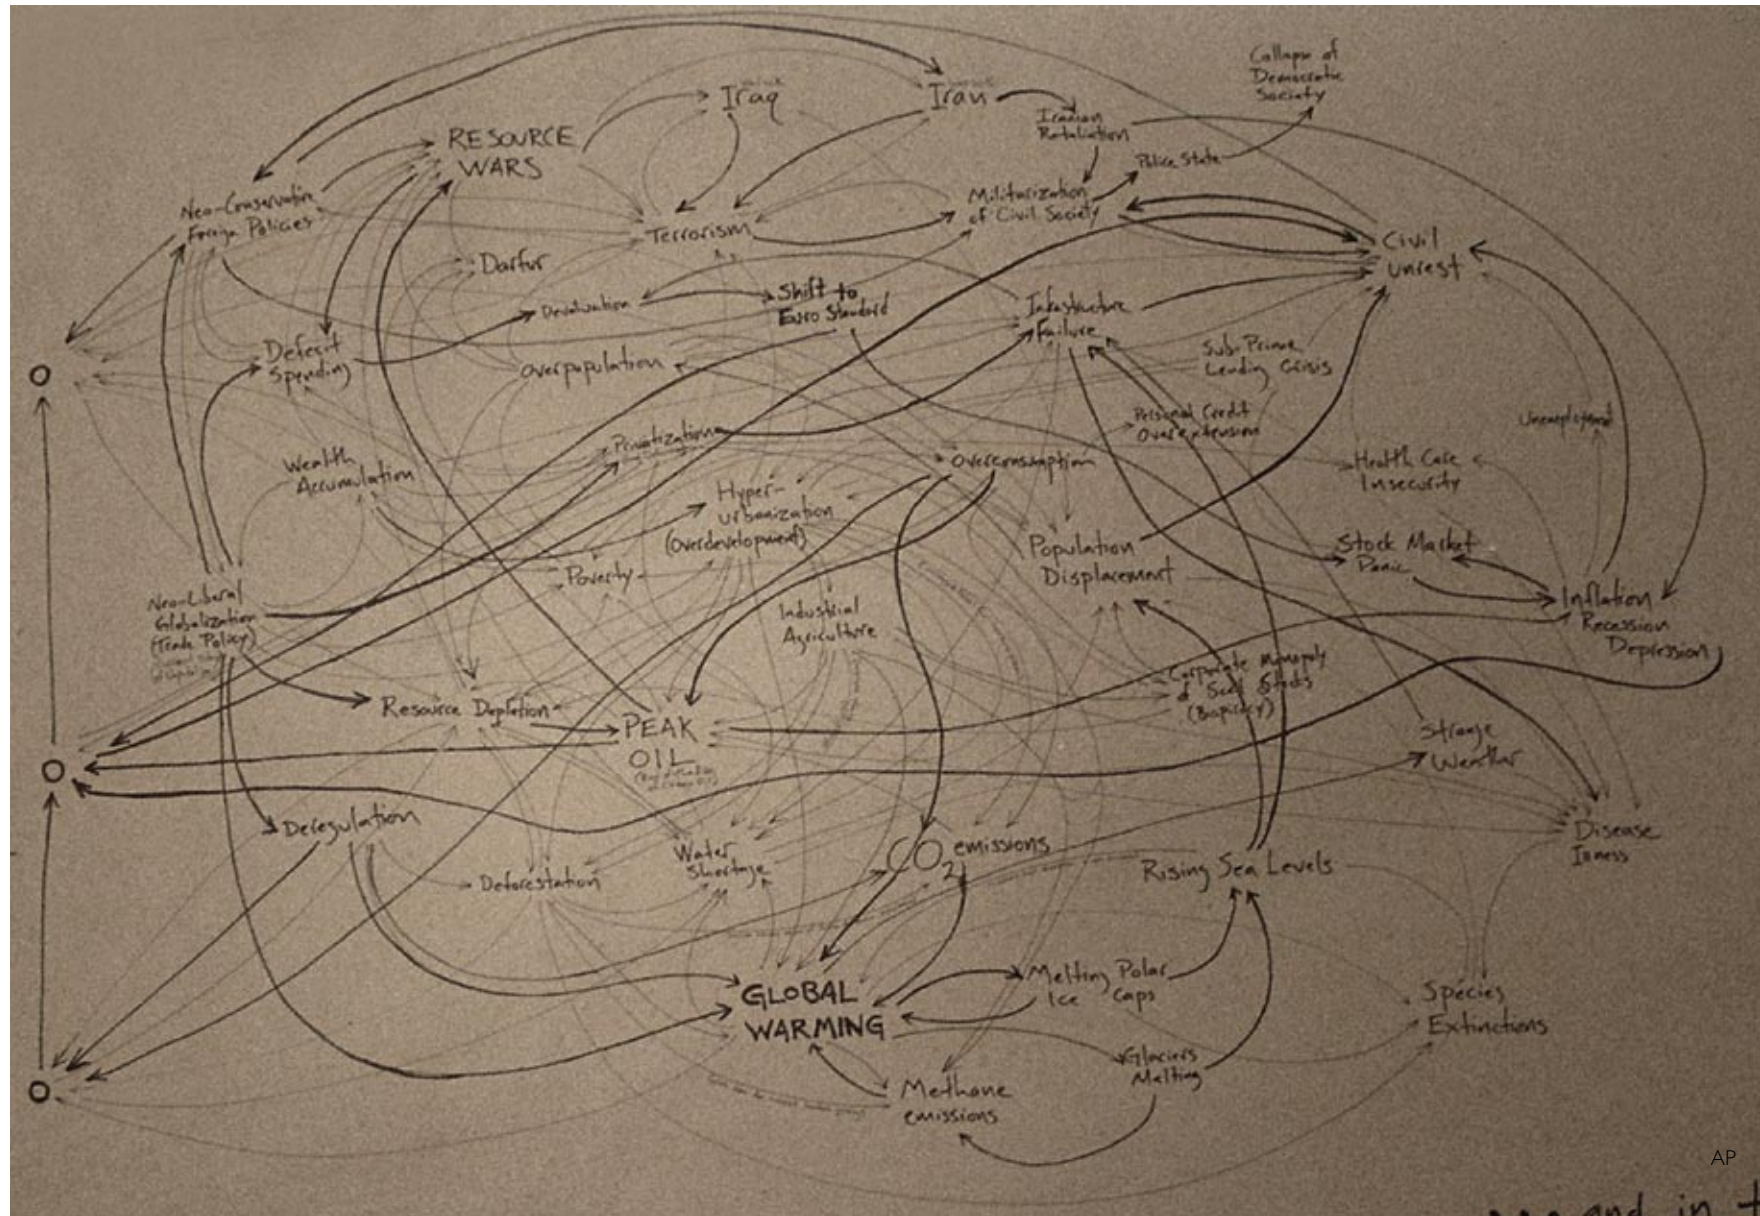 Collapse of
Democratic
Society
Iraq
Iran
Iranian
Retaliation
RESOURCE
WARS
Police State
Neo-Conservative
Foreign Policies
Militarization
of Civil Society
Terrorism
Civil
Unrest
Darfur
Devaluation
Shift to
Euro Standard
Infrastructure
Failure
Deficit
Spending
Overpopulation
Sub-Prime
Lending Crisis
Personal Credit
Overextension
Unemployment
Privatization
Wealth
Accumulation
Overconsumption
Health Care
Insecurity
Hyper-
urbanization
(Overdevelopment)
Population
Displacement
Stock Market
Panic
Poverty
Neo-Liberal
Globalization
(Trade Policy)
Industrial
Agriculture
Inflation
Recession
Depression
Corporate Monopoly
of Seed Stocks
(Biopiracy)
Resource Depletion
PEAK
OIL
Strange
Weather
Deregulation
Disease
Water
Shortage
CO2 emissions
Deforestation
Rising Sea Levels
GLOBAL
WARMING
Melting Polar
Ice Caps
Species
Extinctions
Glaciers
Melting
Methane
emissions
AP
and in